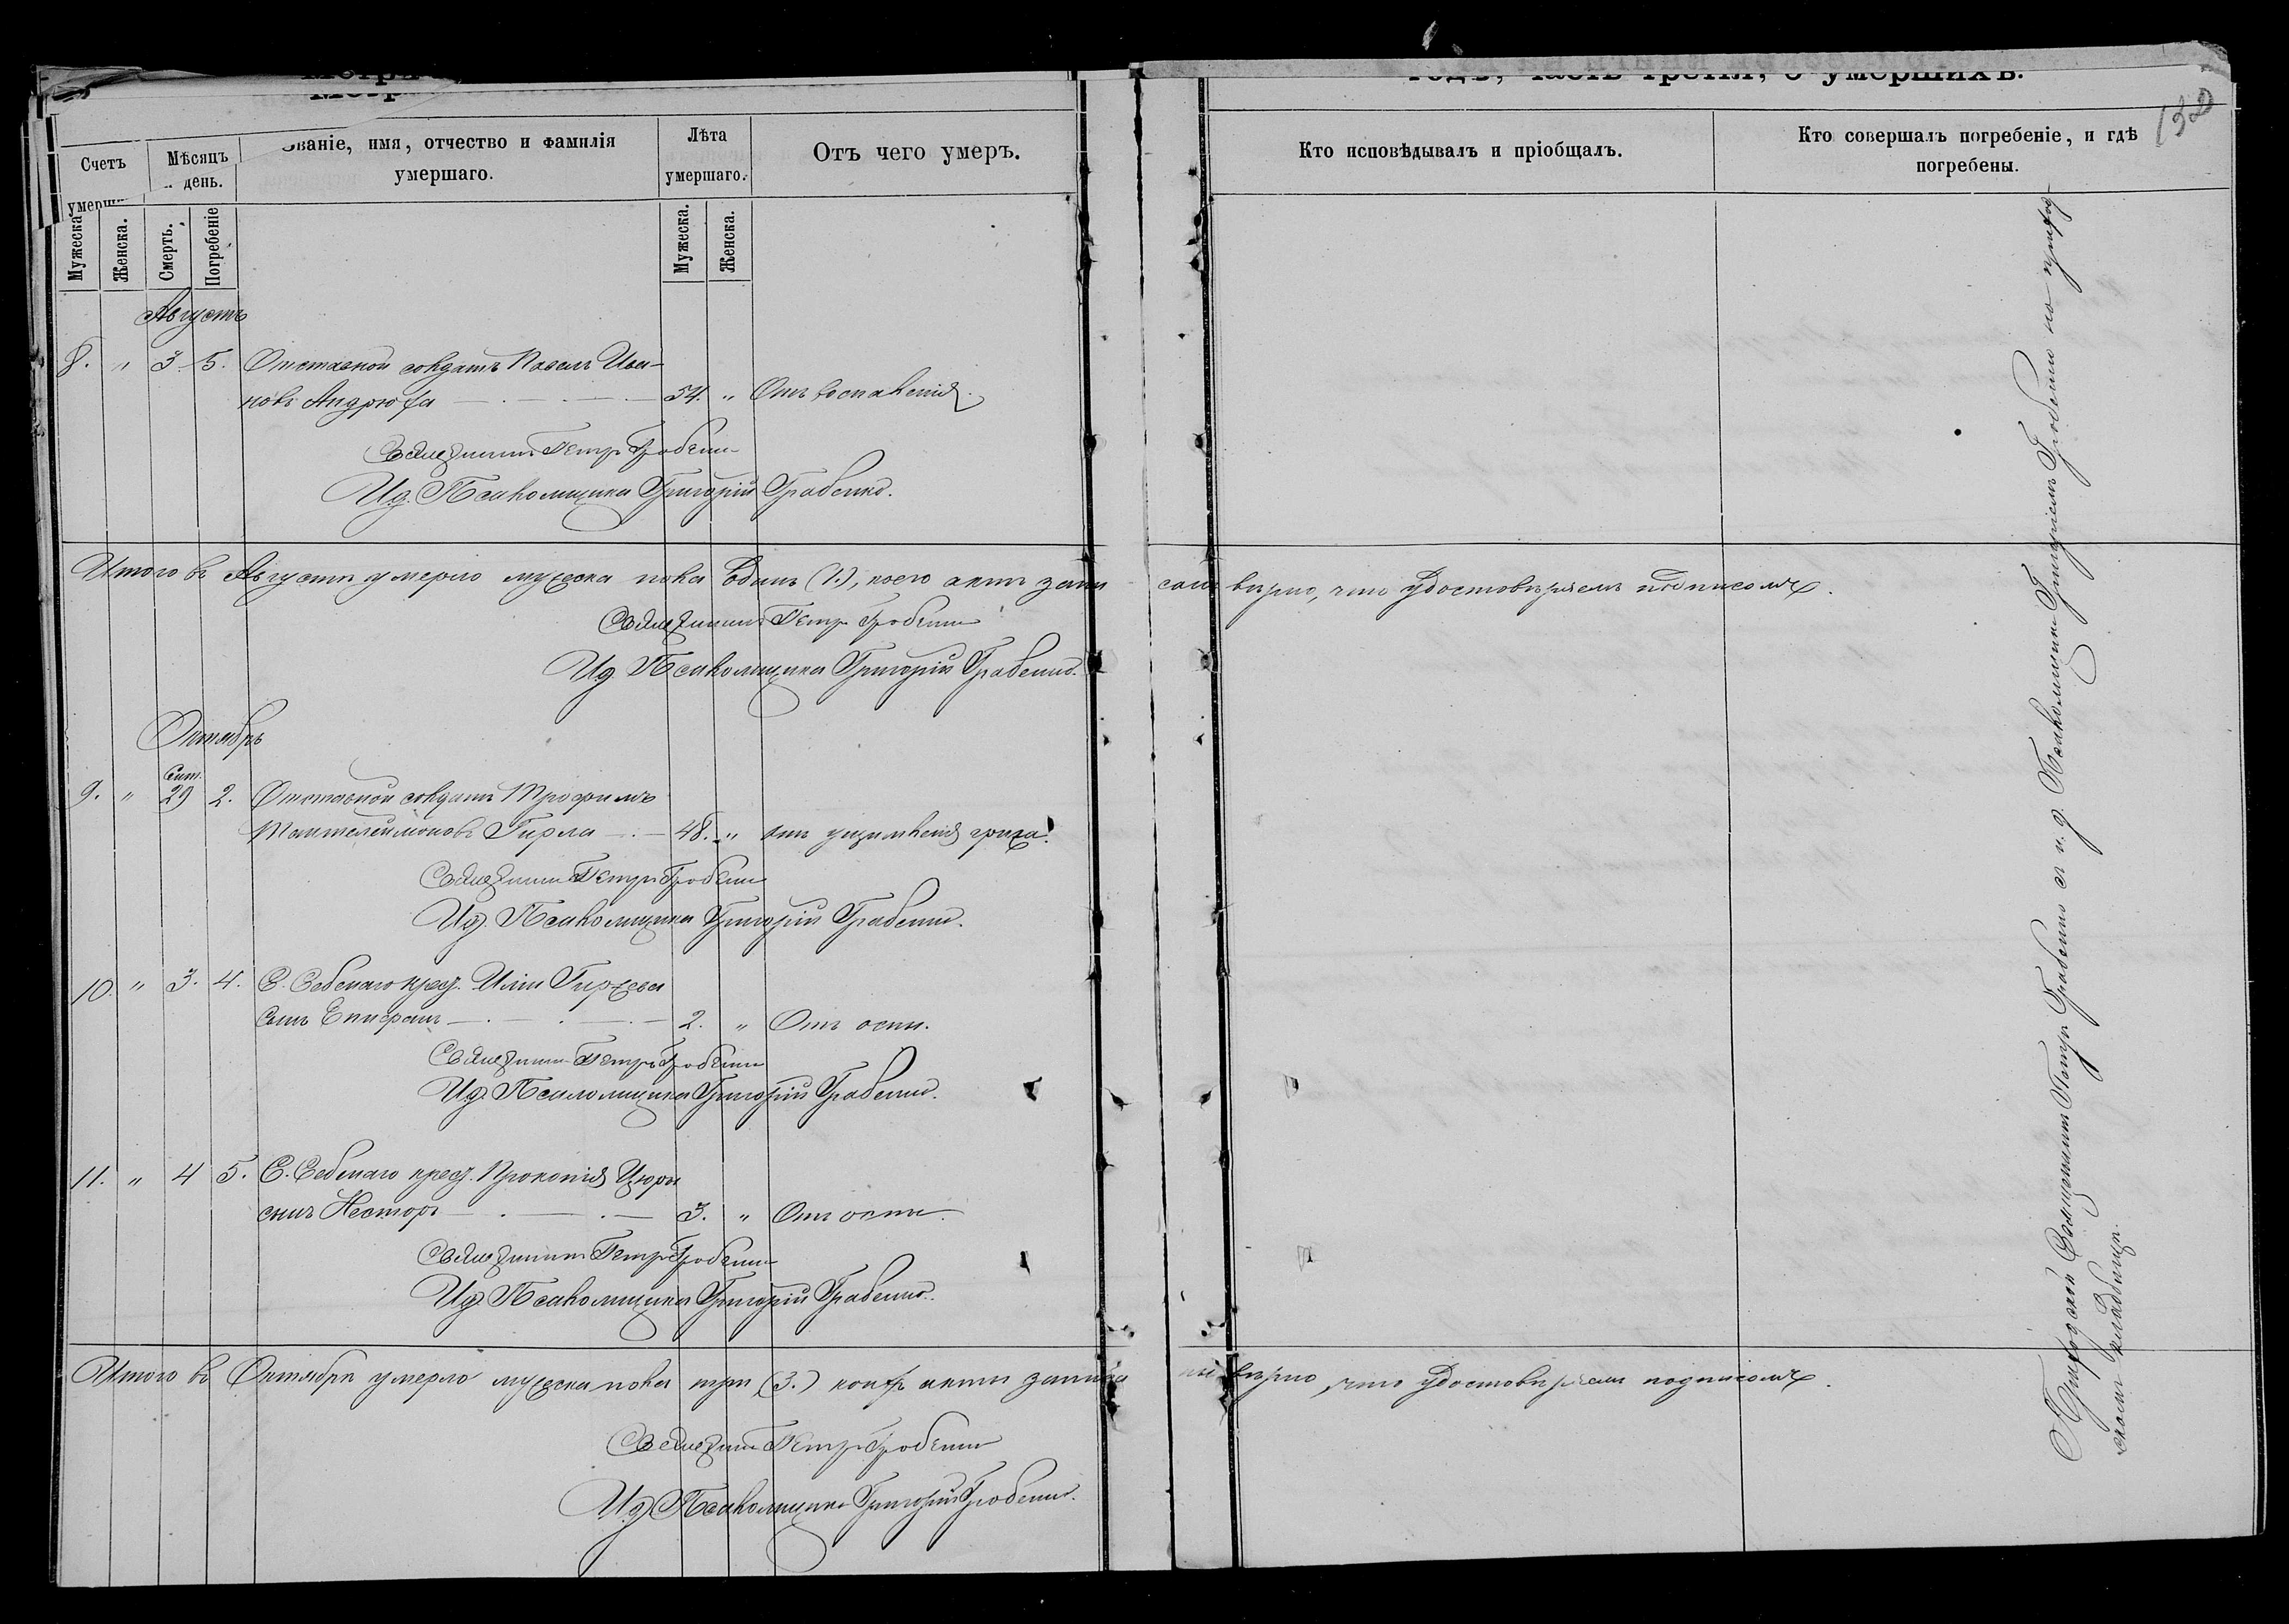 годъ, часть третія, о умершихъ.
132
Счетъ умерш
Мѣсяцъ и день.
Званіе, имя, отчество и фамилія умершаго.
Лѣта умершаго.
Отъ чего умеръ.
Кто исповѣдывалъ и пріобщалъ.
Кто совершалъ погребеніе, и гдѣ погребены.
Мужеска
Женска.
Смерть.
Погребеніе
Мужеска.
Женска.
Августъ
8. " 3 5. Отставной солдатъ Павелъ Ива-
новъ Андрюха 54. " Отъ воспаленія.
Священникъ Петръ Грабенко
И. д. Псаломщика Григорій Грабенко.
Итого въ Августѣ умерло мужеска пола Одинъ (1.), коего актъ запи санъ вѣрно, что удостовѣряемъ подписомъ.
Священникъ Петръ Грабенко
И. д. Псаломщика Григорій Грабенко.
Октябрь
Сент.
9. " 29 2. Отставной солдатъ Трофимъ
Пантелеймоновъ Гирла 48. " отъ ущемленія грыжи.
Священникъ Петръ Грабенко
И. д. Псаломщика Григорій Грабенко.
10. " 3. 4. С. Себенаго крест. Иліи Гиржева
сынъ Епифанъ 2. " Отъ оспы.
Священникъ Петръ Грабенко
И. д. Псаломщика Григорій Грабенко.
11. " 4 5. С. Себенаго крест. Прокопія Цюры
сынъ Несторъ 3. " Отъ оспы.
Священникъ Петръ Грабенко
И. д. Псаломщика Григорій Грабенко.
Итого въ Октябрѣ умерло мужеска пола три (3.) коихъ акты записа ны вѣрно, что удостовѣряемъ подписомъ.
Священникъ Петръ Грабенко
И. д. Псаломщика Григорій Грабенко.
Приходской Священникъ Петръ Грабенко съ и. д. Псаломщика Григоріемъ Грабенко на приход
скомъ кладбищѣ.